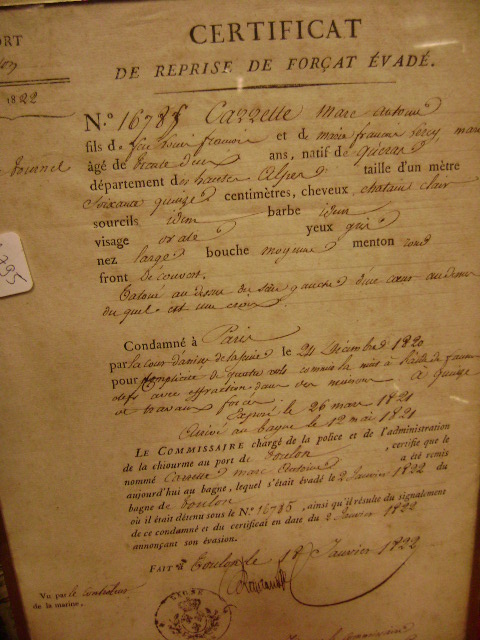 CERTIFICAT
ORT
DE REPRISE DE FORÇAT ÉVADÉ.
1822
N.º 16785 Cazzette Marc Antoine
fils de feu Louis François et de Marie
âgé de trente deux ans, natif de
département des hautes Alpes taille d'un mètre
Soixante quinze centimètres, cheveux chatain clair
sourcils idem barbe idem
visage ovale yeux gris
nez large bouche moyenne menton rond
front découvert.
Tatoué au dessus du sein gauche d'un cœur au dessus
duquel est une croix.
795
Condamné à Paris
par la cour d'assises de la Seine le 24 Décembre 1820
pour Complicité de quatre vols commis la nuit à l'aide de fausses
clefs avec effraction dans des maisons à quinze
ans travaux forcés.
Exposé le 26 mars 1821
Arrivé au bagne le 12 mai 1821
LE COMMISSAIRE chargé de la police et de l'administration
de la chiourme au port de Toulon, certifie que le
nommé Cazzette Marc Antoine a été remis
aujourd'hui au bagne, lequel s'était évadé le 2 Janvier 1822 du
bagne de Toulon
où il était détenu sous le N.º 16785, ainsi qu'il résulte du signalement
de ce condamné et du certificat en date du 2 Janvier 1822
annonçant son évasion.
FAIT à Toulon le 18 Janvier 1822
Vu par le contrôleur
de la marine,
BAGNE